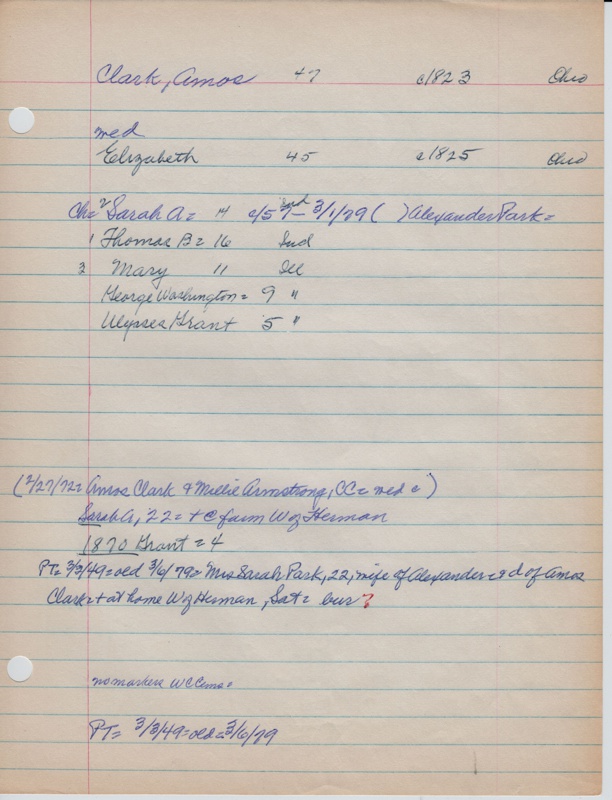 Clark, Amos 47 c1823 Ohio
med
Elizabeth 45 c1825 Ohio
Ch= 2 Sarah A= 14 c/57 Ind - 3/1/79 ( ) Alexander Park=
1 Thomas B= 16 Ind
3 Mary 11 Ill
George Washington= 9 "
Ulysses Grant 5 "
(2/27/72= Amos Clark & Millie Armstrong, CC= med c)
Sarah A, 22= + @ farm W of Herman
1870 Grant = 4
PT= 3/3/49=old 3/6/79= Mrs Sarah Park, 22, wife of Alexander & d of Amos
Clark=+ at home W of Herman, Sat= bur ?
no markers WCCem=
PT= 3/3/49=old=3/6/79